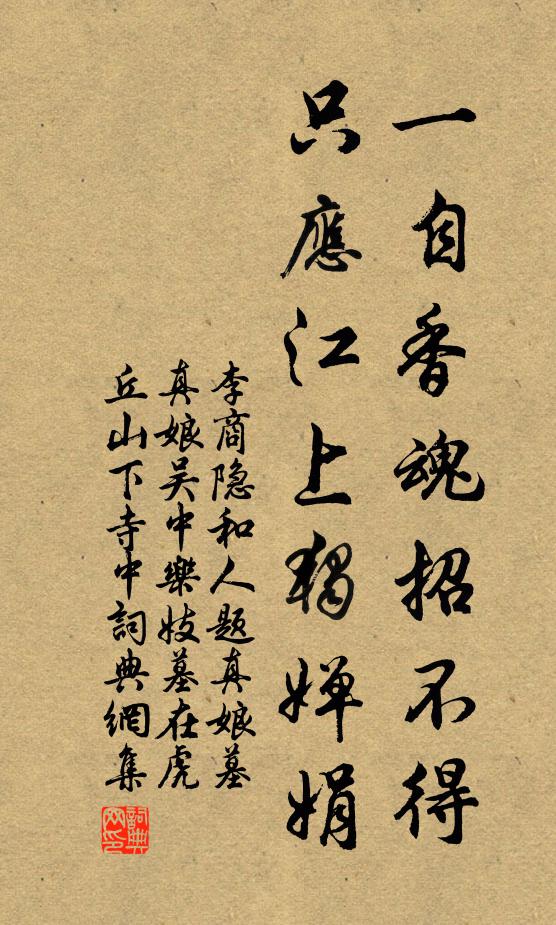 一自香魂招不得
只應江上獨嬋娟
李商隐和人题真娘墓
真娘吴中樂妓墓在虎
丘山下寺中詞典網集
詞典網印